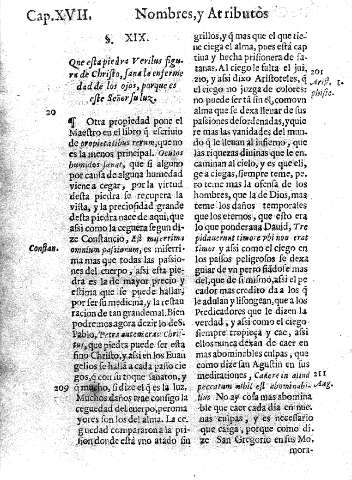 Cap. XVII.
Nombres, y Atributos
§. XIX.
Que esta piedra Verilus figu
re de Christo, sana la enferme
dad de los ojos, porque es
este Señor su luz.
20
¶ Otra propiedad pone el
Maestro en el libro q̃ escriuio
de proprietatibus rerum, que no
es la menos principal. Oculos
humidos sanat, que si alguno
por causa de alguna humedad
viene a cegar, por la virtud
desta piedra se recupera la
vista, y la preciosidad grande
desta piedra nace de aqui, que
assi como la ceguera segun di-
Constan.
ze Constancio, Est miserrima
omnium passionum, es miserri-
ma mas que todas las passio-
nes del cuerpo, assi esta pie-
dra es la de mayor precio y
estima que se puede hallar,
por ser su medicina, y la restau-
racion de tan grande mal. Bien
podremos agora dezir lo de S.
Pablo, Petra autem erat Chris-
tus, que piedra puede ser esta
sino Christo, y assi en los Euan
gelios se halla a cada passo cie-
gos, q̃ con su toque sanaron, y
209
q̃ mucho, si dize el q̃ es la luz.
Muchos daños trae consigo la
ceguedad del cuerpo, pero ma
yores son los del alma. La ce-
guedad compararon a la pri-
sion donde está vno atado sin
grillos, y q̃ mas que el que tie-
ne ciega el alma, pues està cap
tiua y hecha prisionera de Sa-
tanas. Al ciego le falta el jui-
201
zio, y assi dixo Aristoteles, q̃
Arist. 1.
phisic.
el ciego no juzga de colores:
no puede ser tã sin el, como vn
alma que se dexa lleuar de sus
passiones desordenadas, y quie
re mas las vanidades del mun-
do q̃ le lleuan al infierno, que
las riquezas diuinas que le en-
caminan al cielo, y es que elli-
ge a ciegas, siempre teme, pe-
ro teme mas la ofensa de los
hombres, que la de Dios, mas
teme los daños temporales
que los eternos, que esto era
lo que ponderaua Dauid, Tre
pidauerunt timore vbi non erat
timor y assi como el ciego en
los passos peligrosos se dexa
guiar de vn perro fiãdole mas
del, que de si mismo, assi el pe
cador mas credito da a los q̃
le adulan y lisongean, que a los
Predicadores que le dizen la
verdad, y assi como el ciego
siempre tropieça y cae, assi
ellos nunca dexan de caer en
mas abominables culpas, que
como dize san Agustin en sus
meditaciones, Cadere in aliud
211
Aug.
peccatum nihil est abominabi-
lius. No ay cosa mas abomina
ble que caer cada dia en nue-
uas culpas, y es necessario
que caiga, porque como di-
ze San Gregorio en sus Mo-
mora-